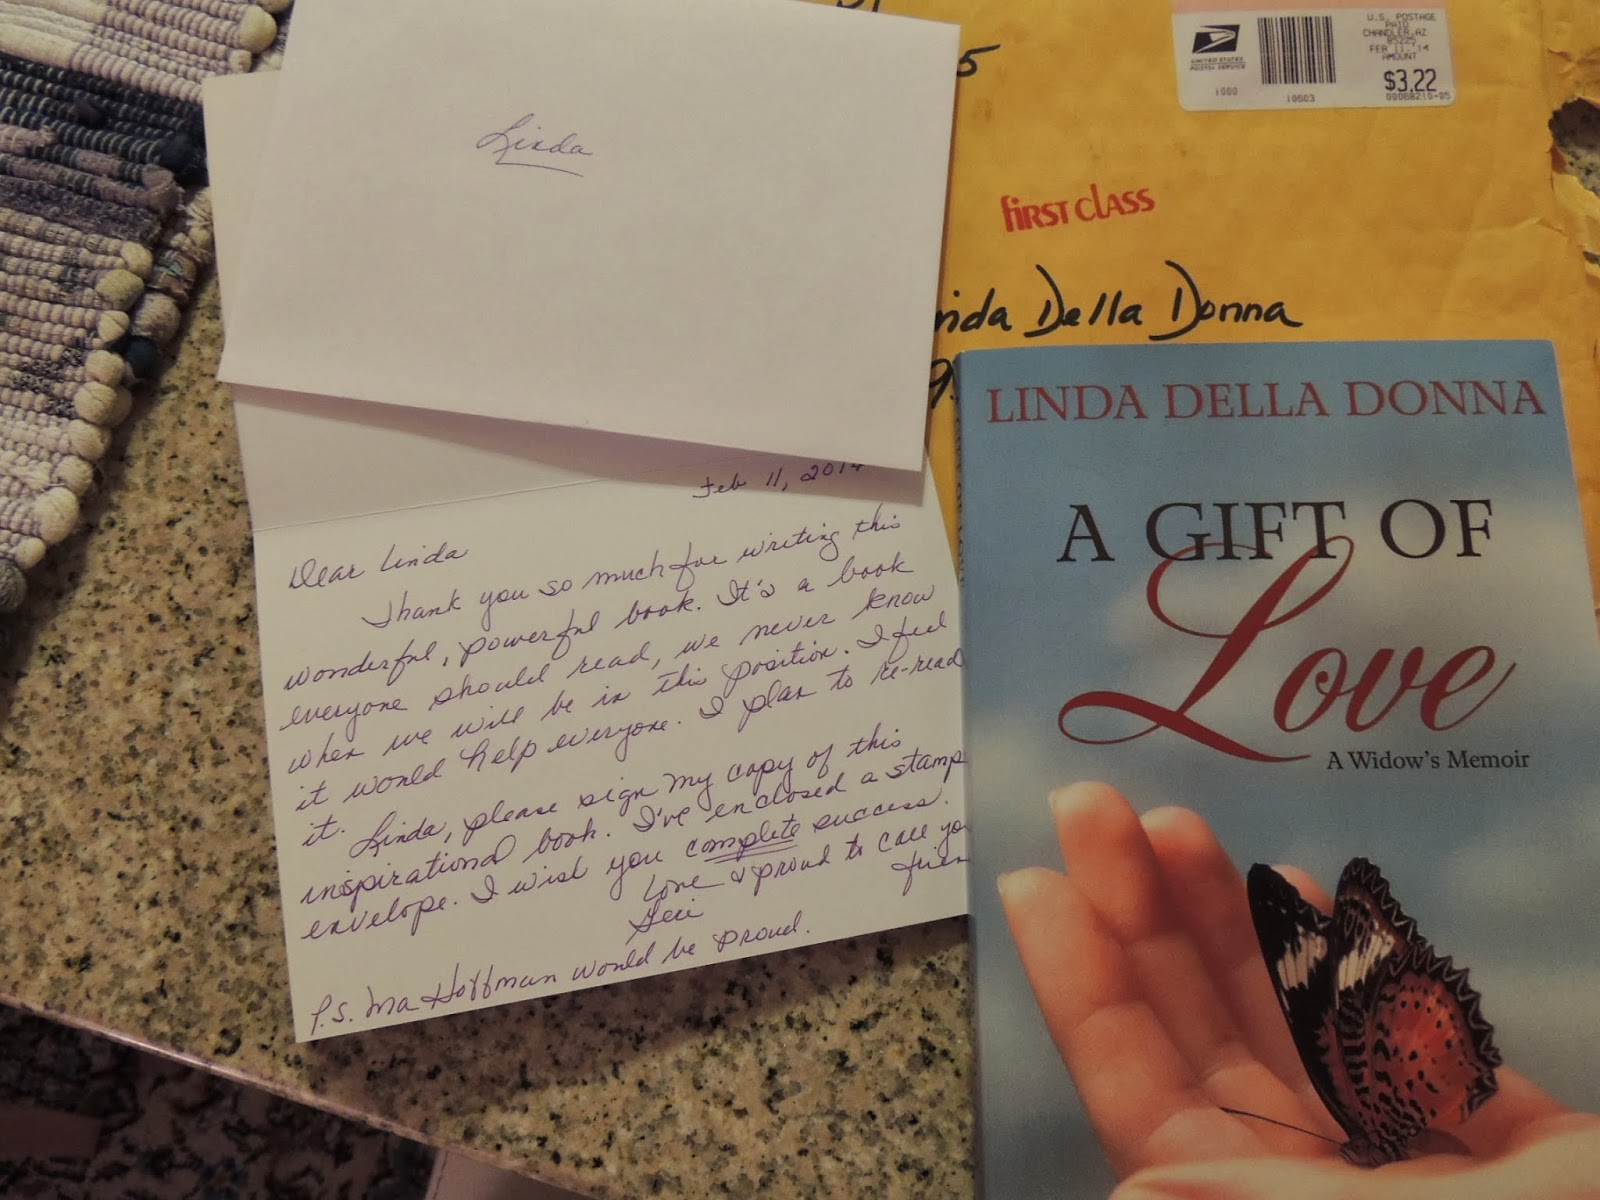 Linda
Feb 11, 2014
Dear Linda
Thank you so much for writing this
wonderful, powerful book. It's a book
everyone should read, we never know
when we will be in this position. I feel
it would help everyone. I plan to re-read
it.
Linda, please sign my copy of this
inspirational book. I've enclosed a stamp
envelope. I wish you complete success.
Love & proud to call yo
frien
Geri
P.S. Ma Hoffman would be proud.
5
U.S. POSTAGE
PAID
CHANDLER, AZ
85225
FEB 11, '14
AMOUNT
$3.22
00068210-05
UNITED STATES
POSTAL SERVICE
1000
10603
first class
nda Della Donna
9
LINDA DELLA DONNA
A GIFT OF
Love
A Widow's Memoir